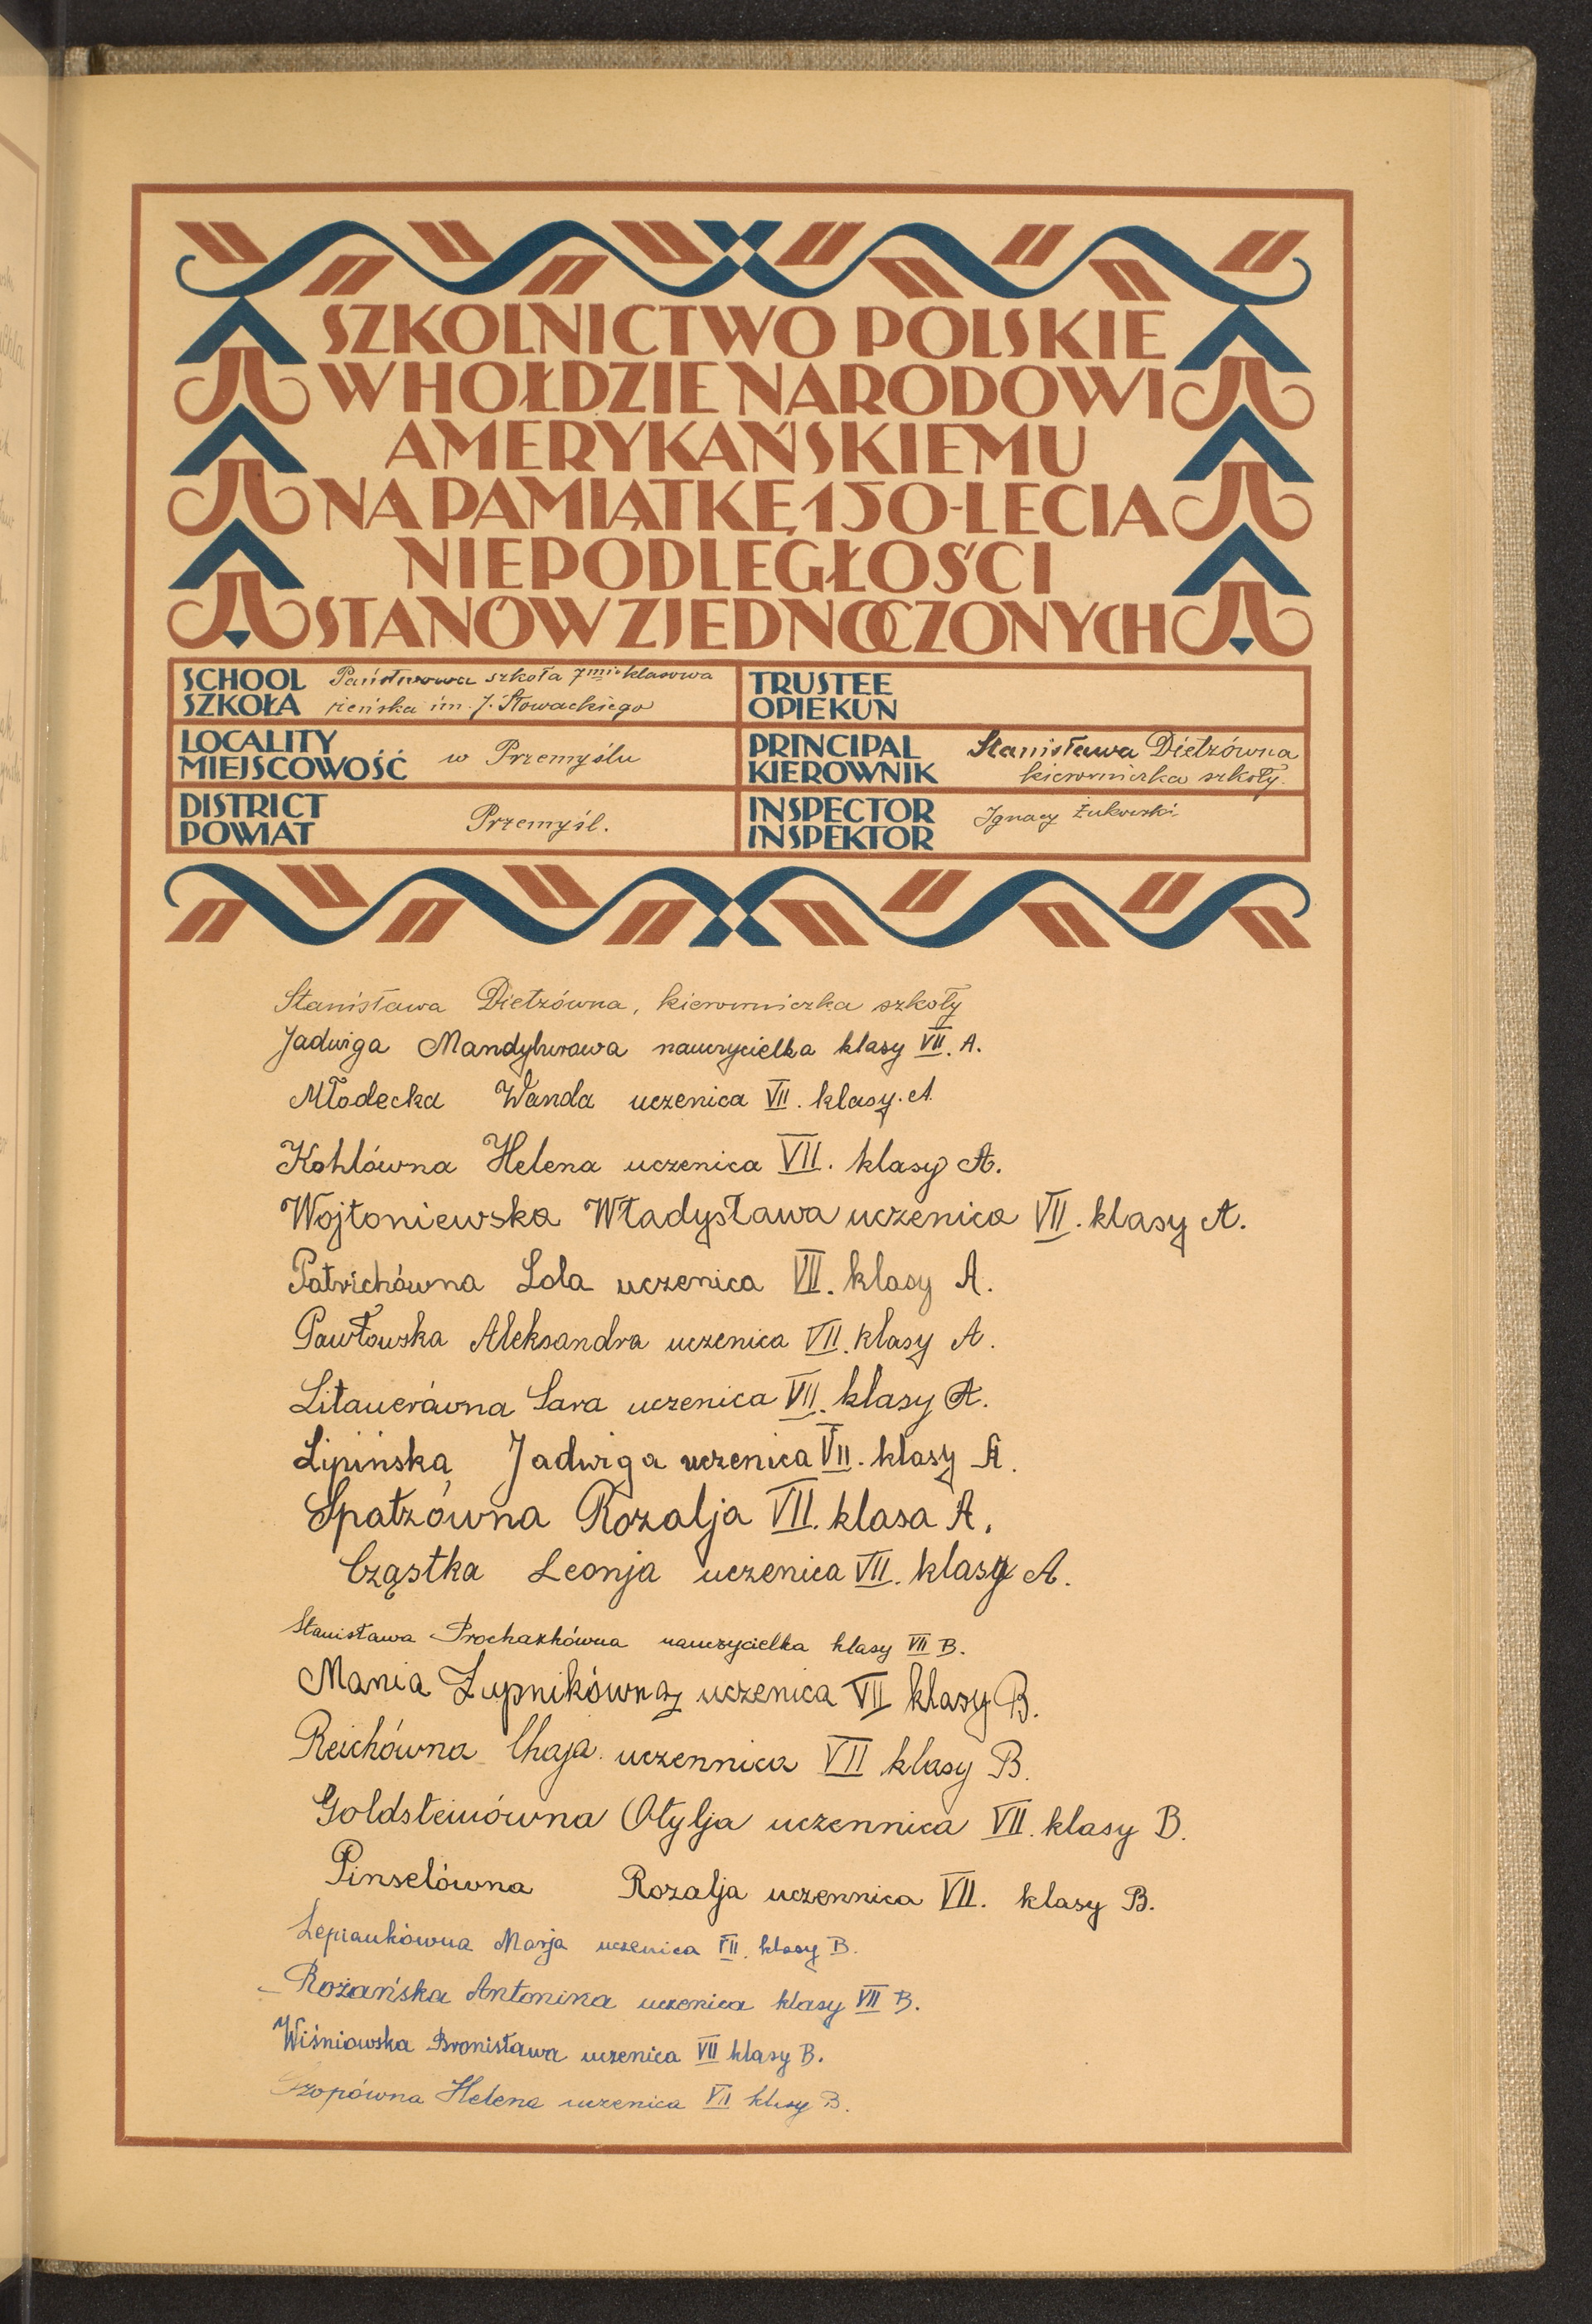 SZKOLNICTWO POLSKIE
W HOŁDZIE NARODOWI
AMERYKAŃSKIEMU
NA PAMIĄTKĘ 150-LECIA
NIEPODLEGŁOŚCI
STANÓW ZJEDNOCZONYCH
SCHOOL
SZKOŁA
Państwowa szkoła 7mio klasowa
żeńska im. J. Słowackiego
TRUSTEE
OPIEKUN
LOCALITY
MIEJSCOWOŚĆ
w Przemyślu
PRINCIPAL
KIEROWNIK
Stanisława Dietzówna
kierowniczka szkoły.
DISTRICT
POWIAT
Przemyśl.
INSPECTOR
INSPEKTOR
Ignacy Żukowski
Stanisława Dietzówna, kierowniczka szkoły
Jadwiga Mandyburowa nauczycielka klasy VII. A.
Młodecka Wanda uczenica VII. klasy. A.
Kohlówna Helena uczenica VII. klasy A.
Wojtoniewska Władysława uczenica VII. klasy A.
Patrichówna Lola uczenica VII. klasy A.
Pawłowska Aleksandra uczenica VII. klasy A.
Litauerówna Sara uczenica VII. klasy A.
Lipińska Jadwiga uczenica VII. klasy A.
Spatzówna Rozalja VII. klasa A.
Cząstka Leonja uczenica VII. klasy A.
Stanisława Prochazkówna nauczycielka klasy VII B.
Mania Zupnikówna, uczenica VII klasy B.
Reichówna Chaja uczennica VII klasy B.
Goldsteinówna Otylja uczennica VII. klasy B.
Pinselówna Rozalja uczennica VII. klasy B.
Lepiankówna Marja uczenica VII. klasy B.
Rożańska Antonina uczenica klasy VII B.
Wiśniowska Bronisława uczenica VII klasy B.
Helena uczenica VII klasy B.